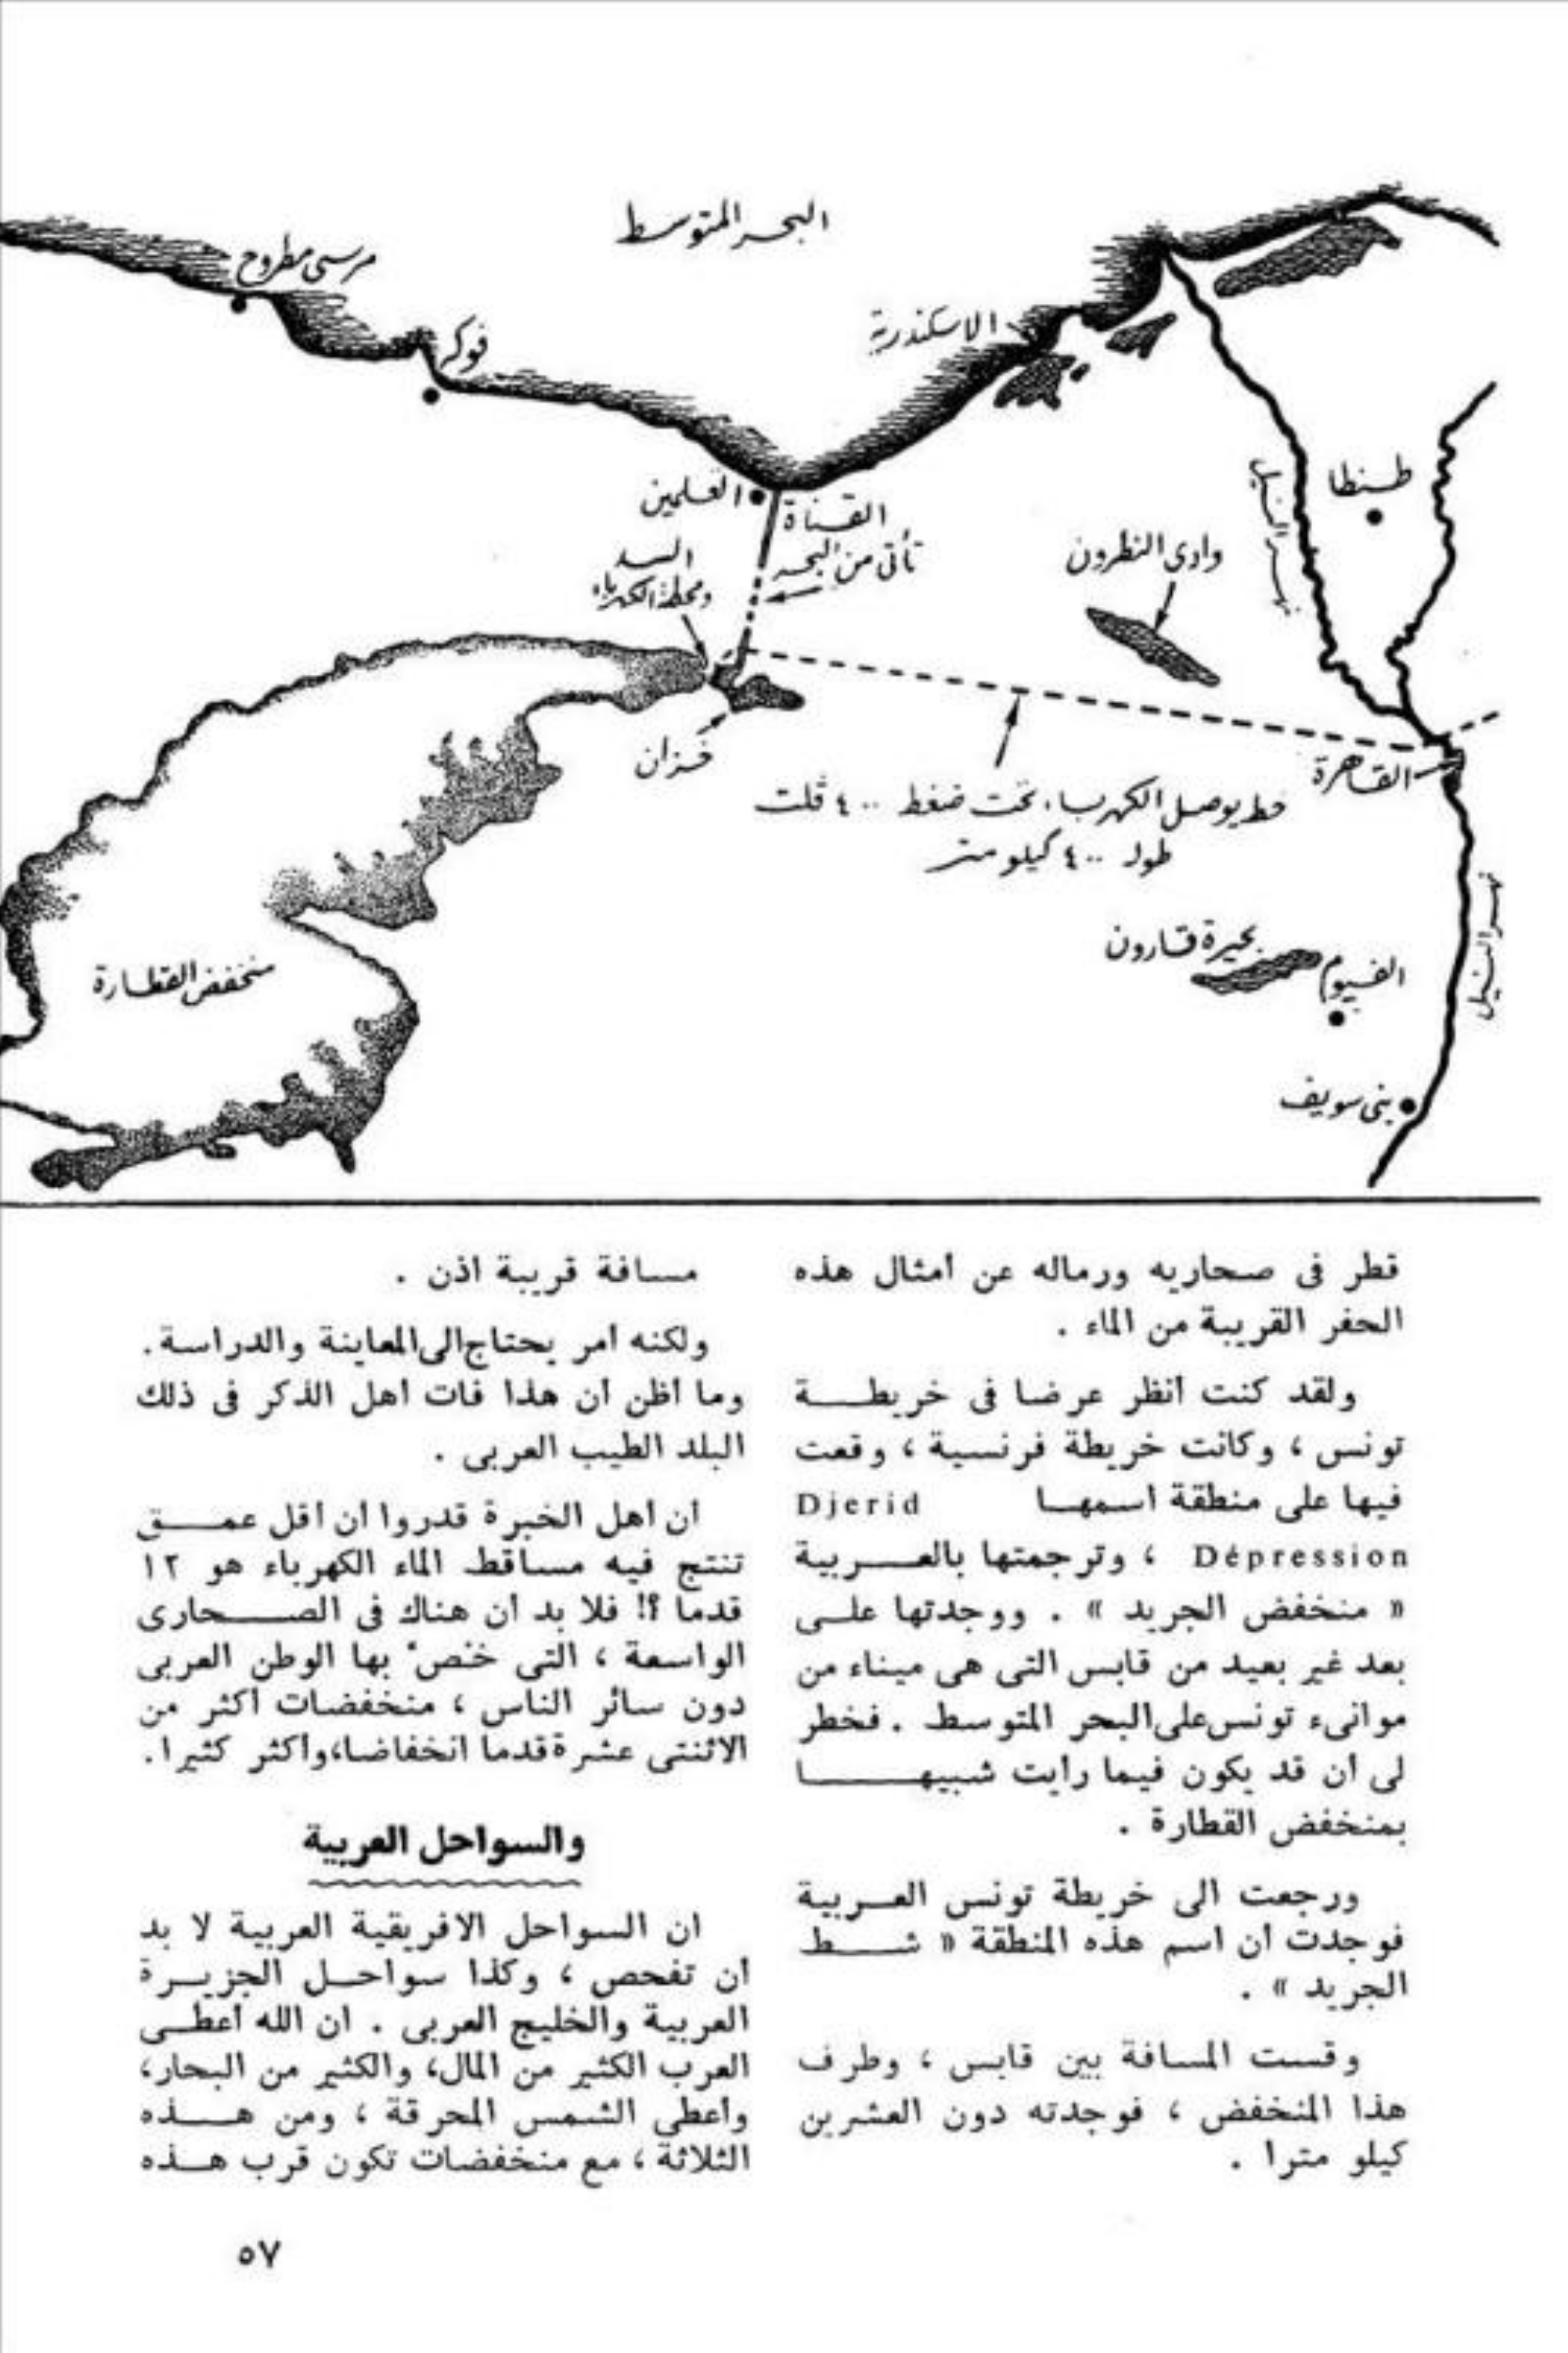 البحر المتوسط
مرسى مطروح
فوكه
الاسكندرية
العلمين
القناة
تأتى من البحر
السد
ومحطة الكهرباء
وادى النطرون
نهر النيل
طنطا
خزان
القاهرة
خط يوصل الكهرباء تحت ضغط ٤٠٠ ڤلت
طوله ٤٠٠ كيلو متر
منخفض القطارة
بحيرة قارون
الفيوم
نهر النيل
بنى سويف
قطر فى صحاريه ورماله عن أمثال هذه
الحفر القريبة من الماء .
ولقد كنت أنظر عرضا فى خريطــة
تونس ، وكانت خريطة فرنسية ، وقعت
فيها على منطقة اسمهـا Djerid
Dépression ، وترجمتها بالعــربية
« منخفض الجريد » . ووجدتها علــى
بعد غير بعيد من قابس التى هى ميناء من
موانىء تونس على البحر المتوسط . فخطر
لى أن قد يكون فيما رأيت شبيهــا
بمنخفض القطارة .
ورجعت الى خريطة تونس العــربية
فوجدت أن اسم هذه المنطقة « شــط
الجريد » .
وقست المسافة بين قابس ، وطرف
هذا المنخفض ، فوجدته دون العشرين
كيلو مترا .
مسافة قريبة اذن .
ولكنه أمر يحتاج الى المعاينة والدراسة .
وما أظن أن هذا فات أهل الذكر فى ذلك
البلد الطيب العربى .
ان أهل الخبرة قدروا أن أقل عمــق
تنتج فيه مساقط الماء الكهرباء هو ١٢
قدما ؟! فلا بد أن هناك فى الصــحارى
الواسعة ، التى خُصّ بها الوطن العربى
دون سائر الناس ، منخفضات أكثر من
الاثنتى عشرة قدما انخفاضا ، وأكثر كثيرا .
والسواحل العربية
ان السواحل الافريقية العربية لا بد
أن تفحص ، وكذا سواحــل الجزيــرة
العربية والخليج العربى . ان الله أعطــى
العرب الكثير من المال ، والكثير من البحار ،
وأعطى الشمس المحرقة ، ومن هــذه
الثلاثة ، مع منخفضات تكون قرب هــذه
٥٧